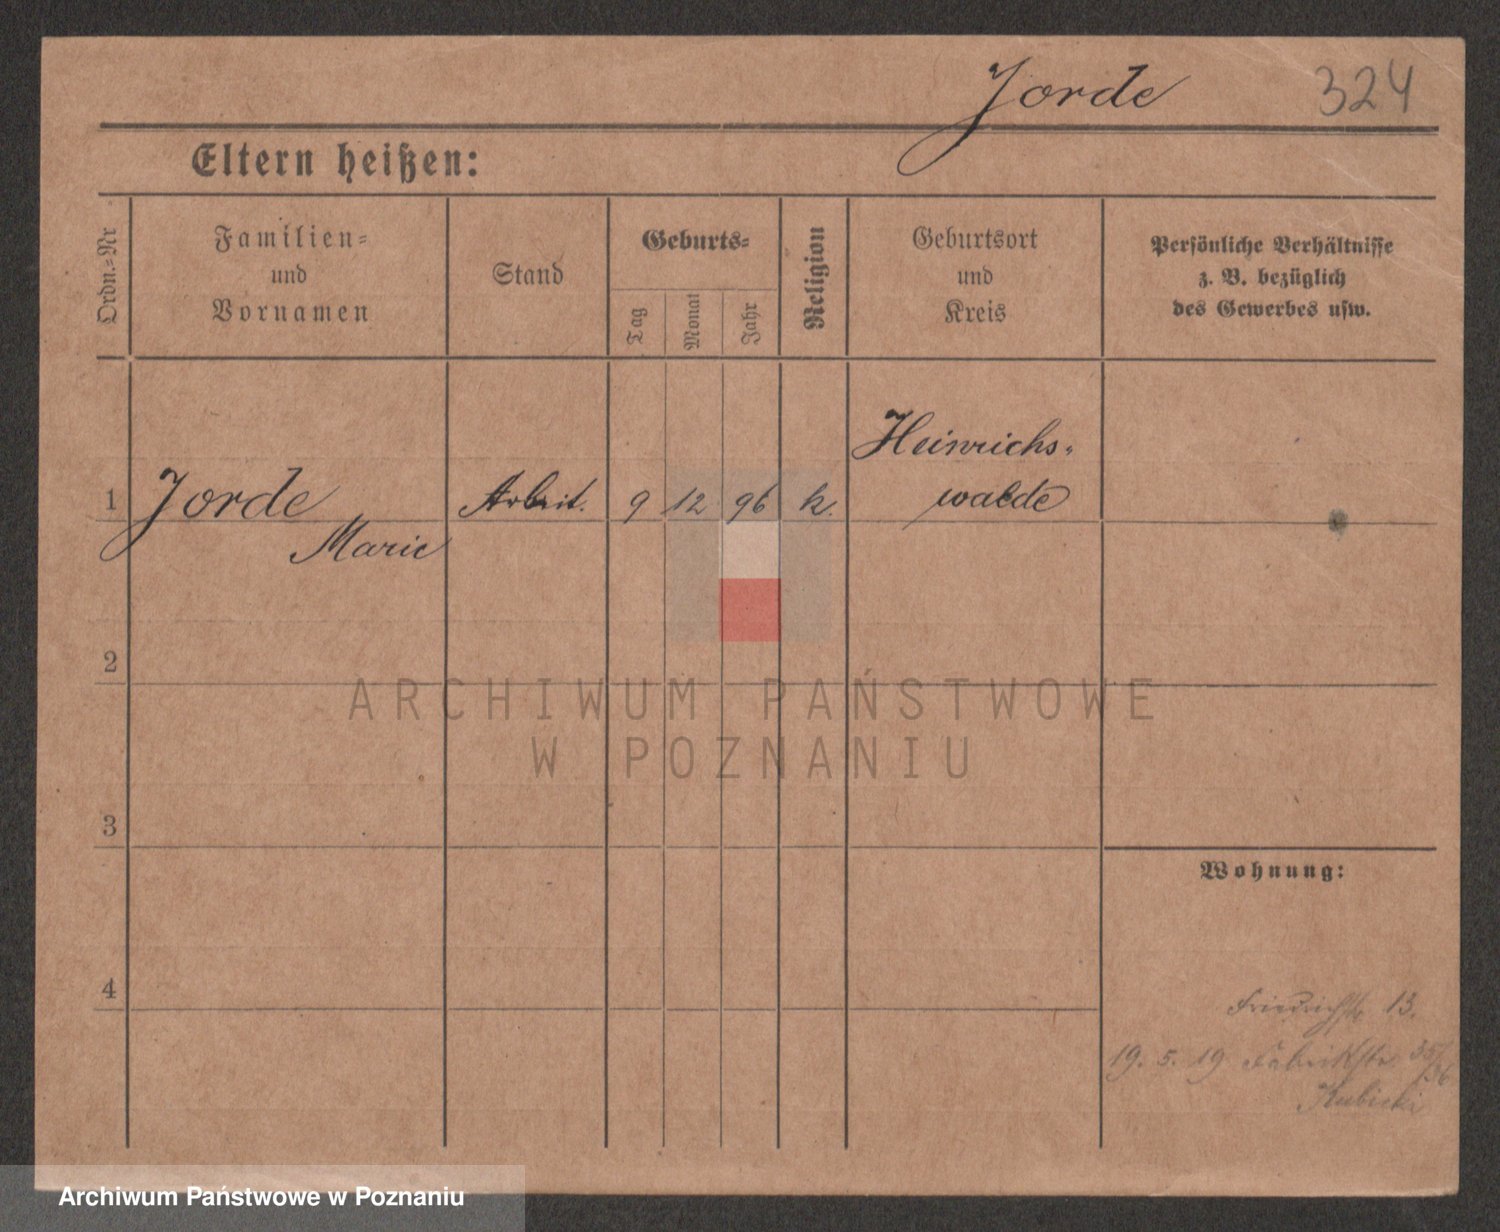 Jorde 324
Eltern heißen:
Ordn.-Nr
Familien-
und
Vornamen
Stand
Geburts-
Tag
Monat
Jahr
Religion
Geburtsort
und
Kreis
Persönliche Verhältnisse
z. B. bezüglich
des Gewerbes usw.
1 Jorde Arbeit. 9 12 96 k. Heinrichs-
walde
Marie
2
3
4
Wohnung:
Friedrichstr 13.
19. 5. 19 Fabrikstr 35/36
Kubicki
ARCHIWUM PAŃSTWOWE
W POZNANIU
Archiwum Państwowe w Poznaniu